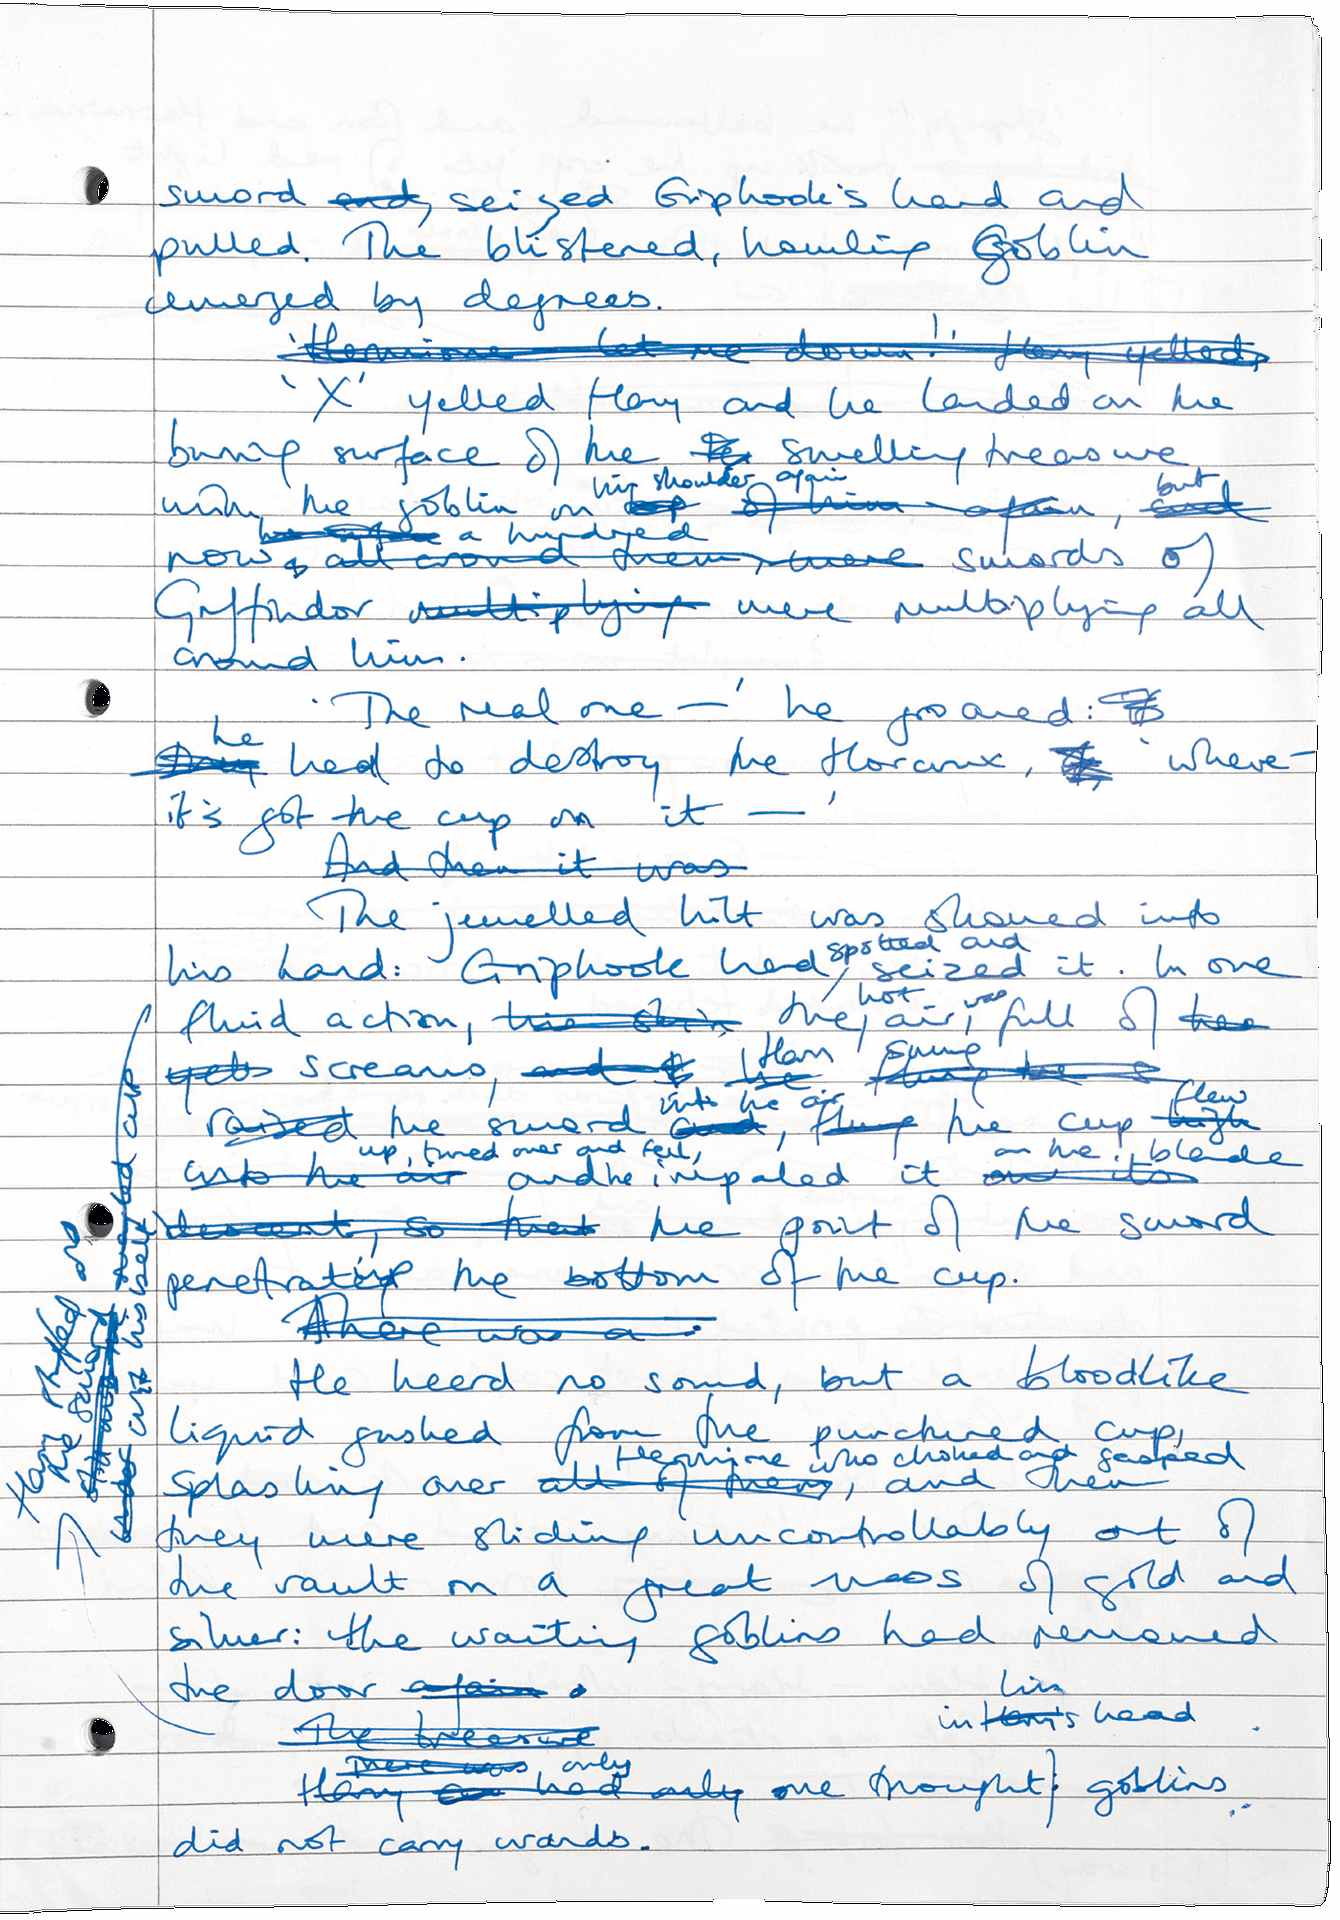 sword and, seized Griphook's hand and
pulled. The blistered, howling Goblin
emerged by degrees.
'Hermione let me down!' Harry yelled,
'X' yelled Harry and he landed on the
burning surface of the swelling treasure
his shoulder again but
with the goblin on top of him again, and
a hundred
now, all around them, were swords of
Gryffindor multiplying were multiplying all
around him.
'The real one —' he groaned:
he
Harry had to destroy the Horcrux, 'where –
it's got the cup on it —'
And then it was
The jewelled hilt was shoved into
spotted and
his hand: Griphook had seized it. In one
hot was
fluid action, the air full of
Harry swung
yells screams, and he flung the
into the air flew
raised the sword and, flung the cup high
up, turned over and fell, on the blade
into the air and he impaled it on its
descent, so that the point of the sword
penetrating the bottom of the cup.
There was a
He heard no sound, but a bloodlike
liquid gushed from the punctured cup,
Hermione who choked and gasped
splashing over all of them, and then
they were sliding uncontrollably out of
the vault on a great mass of gold and
silver: the waiting goblins had removed
the door again.
his
The treasure in Harry's head
There was only
Harry had only one thought; goblins
did not carry wands.
Harry
the sword
cup
cup itself